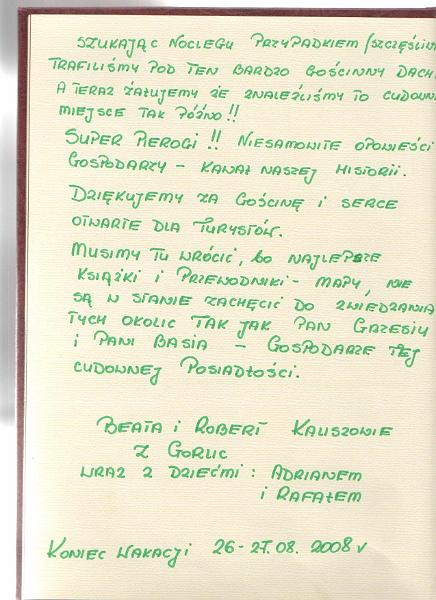 SZUKAJĄC NOCLEGU PRZYPADKIEM (SZCZĘŚLIW
TRAFILIŚMY POD TEN BARDZO GOŚCINNY DACH.
A TERAZ ŻAŁUJEMY ŻE ZNALEŹLIŚMY TO CUDOWN
MIEJSCE TAK PÓŹNO!!
SUPER PIEROGI!! NIESAMOWITE OPOWIEŚCI
GOSPODARZY – KAWAŁ NASZEJ HISTORII.
DZIĘKUJEMY ZA GOŚCINĘ I SERCE
OTWARTE DLA TURYSTÓW.
MUSIMY TU WRÓCIĆ, bo NAJLEPSZE
KSIĄŻKI I PRZEWODNIKI – MAPY, NIE
SĄ W STANIE ZACHĘCIĆ DO ZWIEDZANIA
TYCH OKOLIC TAK JAK PAN GRZESIU
i PANI BASIA – GOSPODARZE TEJ
CUDOWNEJ POSIADŁOŚCI.
BEATA i ROBERT KALISZOWIE
Z GORLIC
WRAZ Z DZIEĆMI: ADRIANEM
i RAFAŁEM
KONIEC WAKACJI 26-27.08. 2008 r